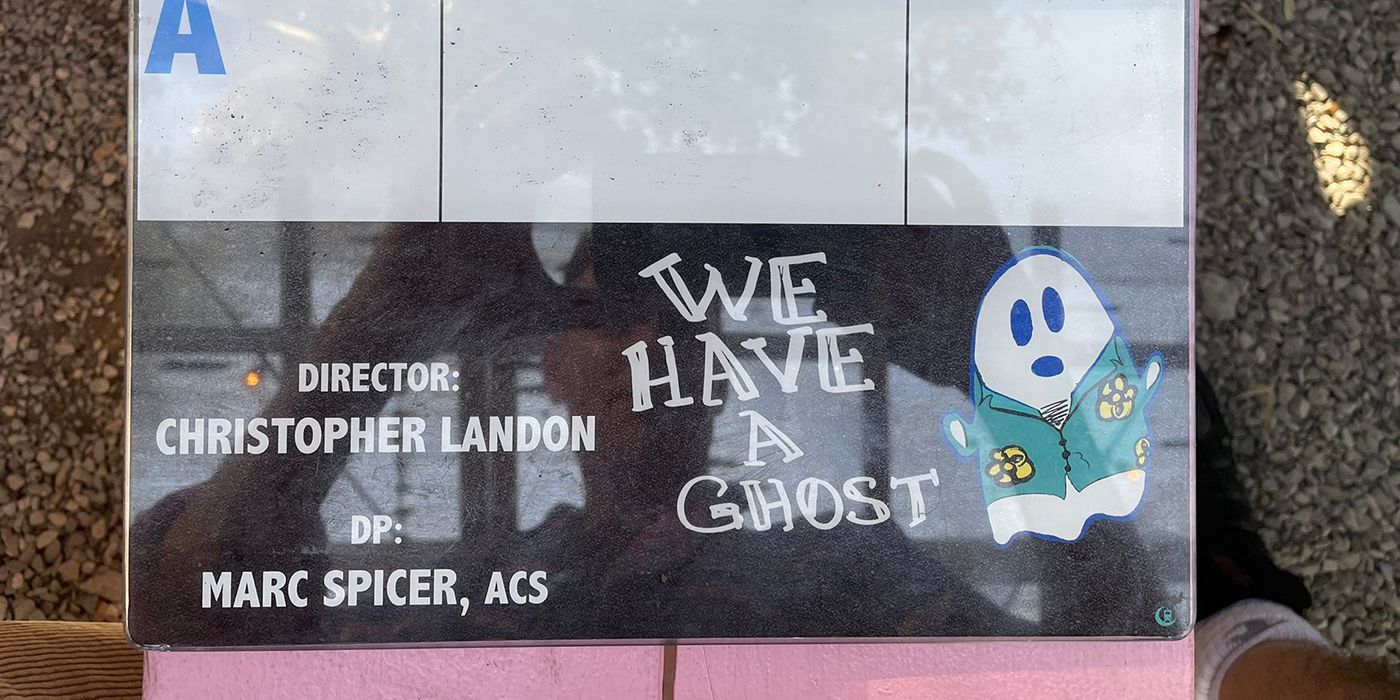 A
DIRECTOR:
CHRISTOPHER LANDON
DP:
MARC SPICER, ACS
WE
HAVE
A
GHOST